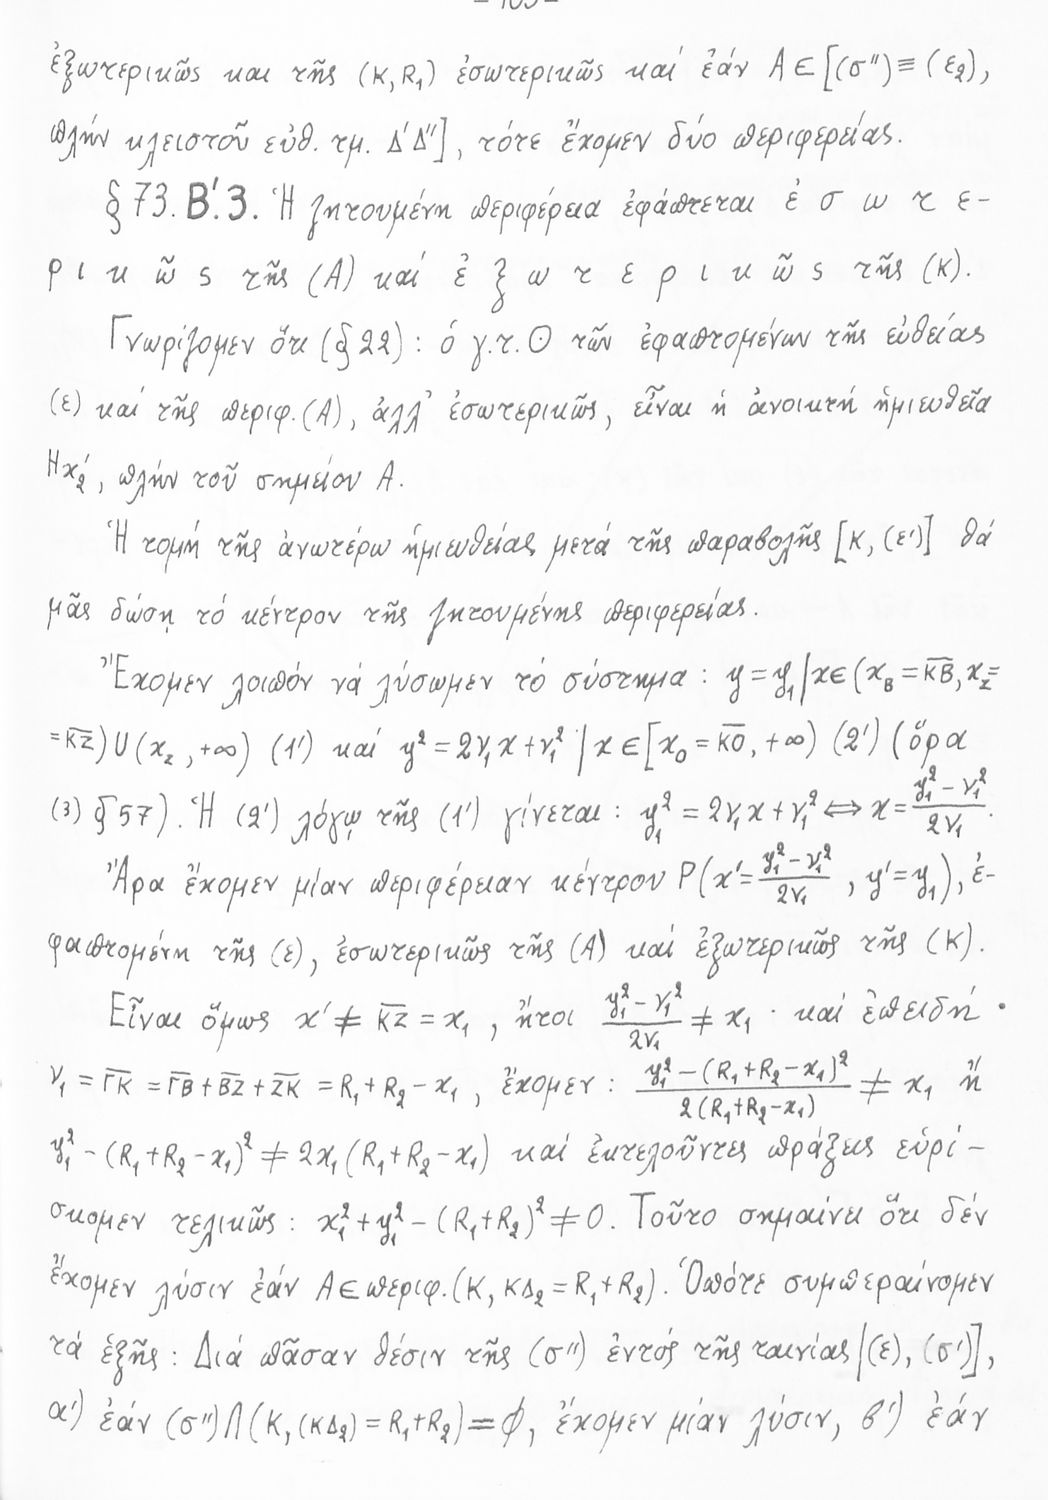 ἐξωτερικῶς και τῆς (K,R₁) ἐσωτερικῶς καί ἐάν A∈[(σ")≡(ε₂),
πλήν κλειστοῦ εὐθ. τμ. Δ'Δ"], τότε ἔχομεν δύο περιφερείας.
§73. Β'.3. Ἡ ζητουμένη περιφέρεια ἐφάπτεται ἐ σ ω τ ε-
ρ ι κ ῶ ς τῆς (A) καί ἐ ξ ω τ ε ρ ι κ ῶ ς τῆς (K).
Γνωρίζομεν ὅτι (§22): ὁ γ.τ. Θ τῶν ἐφαπτομένων τῆς εὐθείας
(ε) καί τῆς περιφ.(A), ἀλλ' ἐσωτερικῶς, εἶναι ἡ ἀνοικτή ἡμιευθεῖα
Hx₂', πλήν τοῦ σημείου A.
Ἡ τομή τῆς ἀνωτέρω ἡμιευθείας μετά τῆς παραβολῆς [K,(ε')] θά
μᾶς δώσῃ τό κέντρον τῆς ζητουμένης περιφερείας.
Ἔχομεν λοιπόν νά λύσωμεν τό σύστημα: y=y₁|x∈(x_B=K̅B̅, x_z=
=K̅Z̅)∪(x_z,+∞) (1') καί y²=2ν₁x+ν₁²|x∈[x₀=K̅O̅,+∞) (2') (ὅρα
(3) §57). Ἡ (2') λόγῳ τῆς (1') γίνεται: y₁²=2ν₁x+ν₁²⇔x=(y₁²-ν₁²)/2ν₁.
Ἄρα ἔχομεν μίαν περιφέρειαν κέντρου P(x'=(y₁²-ν₁²)/2ν₁, y'=y₁), ἐ-
φαπτομένη τῆς (ε), ἐσωτερικῶς τῆς (A) καί ἐξωτερικῶς τῆς (K).
Εἶναι ὅμως x'≠K̅Z̅=x₁, ἤτοι (y₁²-ν₁²)/2ν₁≠x₁· καί ἐπειδή·
ν₁=Γ̅K̅=Γ̅B̅+B̅Z̅+Z̅K̅=R₁+R₂-x₁, ἔχομεν: (y₁²-(R₁+R₂-x₁)²)/2(R₁+R₂-x₁)≠x₁ ἤ
y₁²-(R₁+R₂-x₁)²≠2x₁(R₁+R₂-x₁) καί ἐκτελοῦντες πράξεις εὑρί-
σκομεν τελικῶς: x₁²+y₁²-(R₁+R₂)²≠0. Τοῦτο σημαίνει ὅτι δέν
ἔχομεν λύσιν ἐάν A∈περιφ.(K, KΔ₂=R₁+R₂). Ὁπότε συμπεραίνομεν
τά ἑξῆς: Διά πᾶσαν θέσιν τῆς (σ") ἐντός τῆς ταινίας |(ε),(σ')],
α') ἐάν (σ")∩(K,(KΔ₂)=R₁+R₂)=∅, ἔχομεν μίαν λύσιν, β') ἐάν